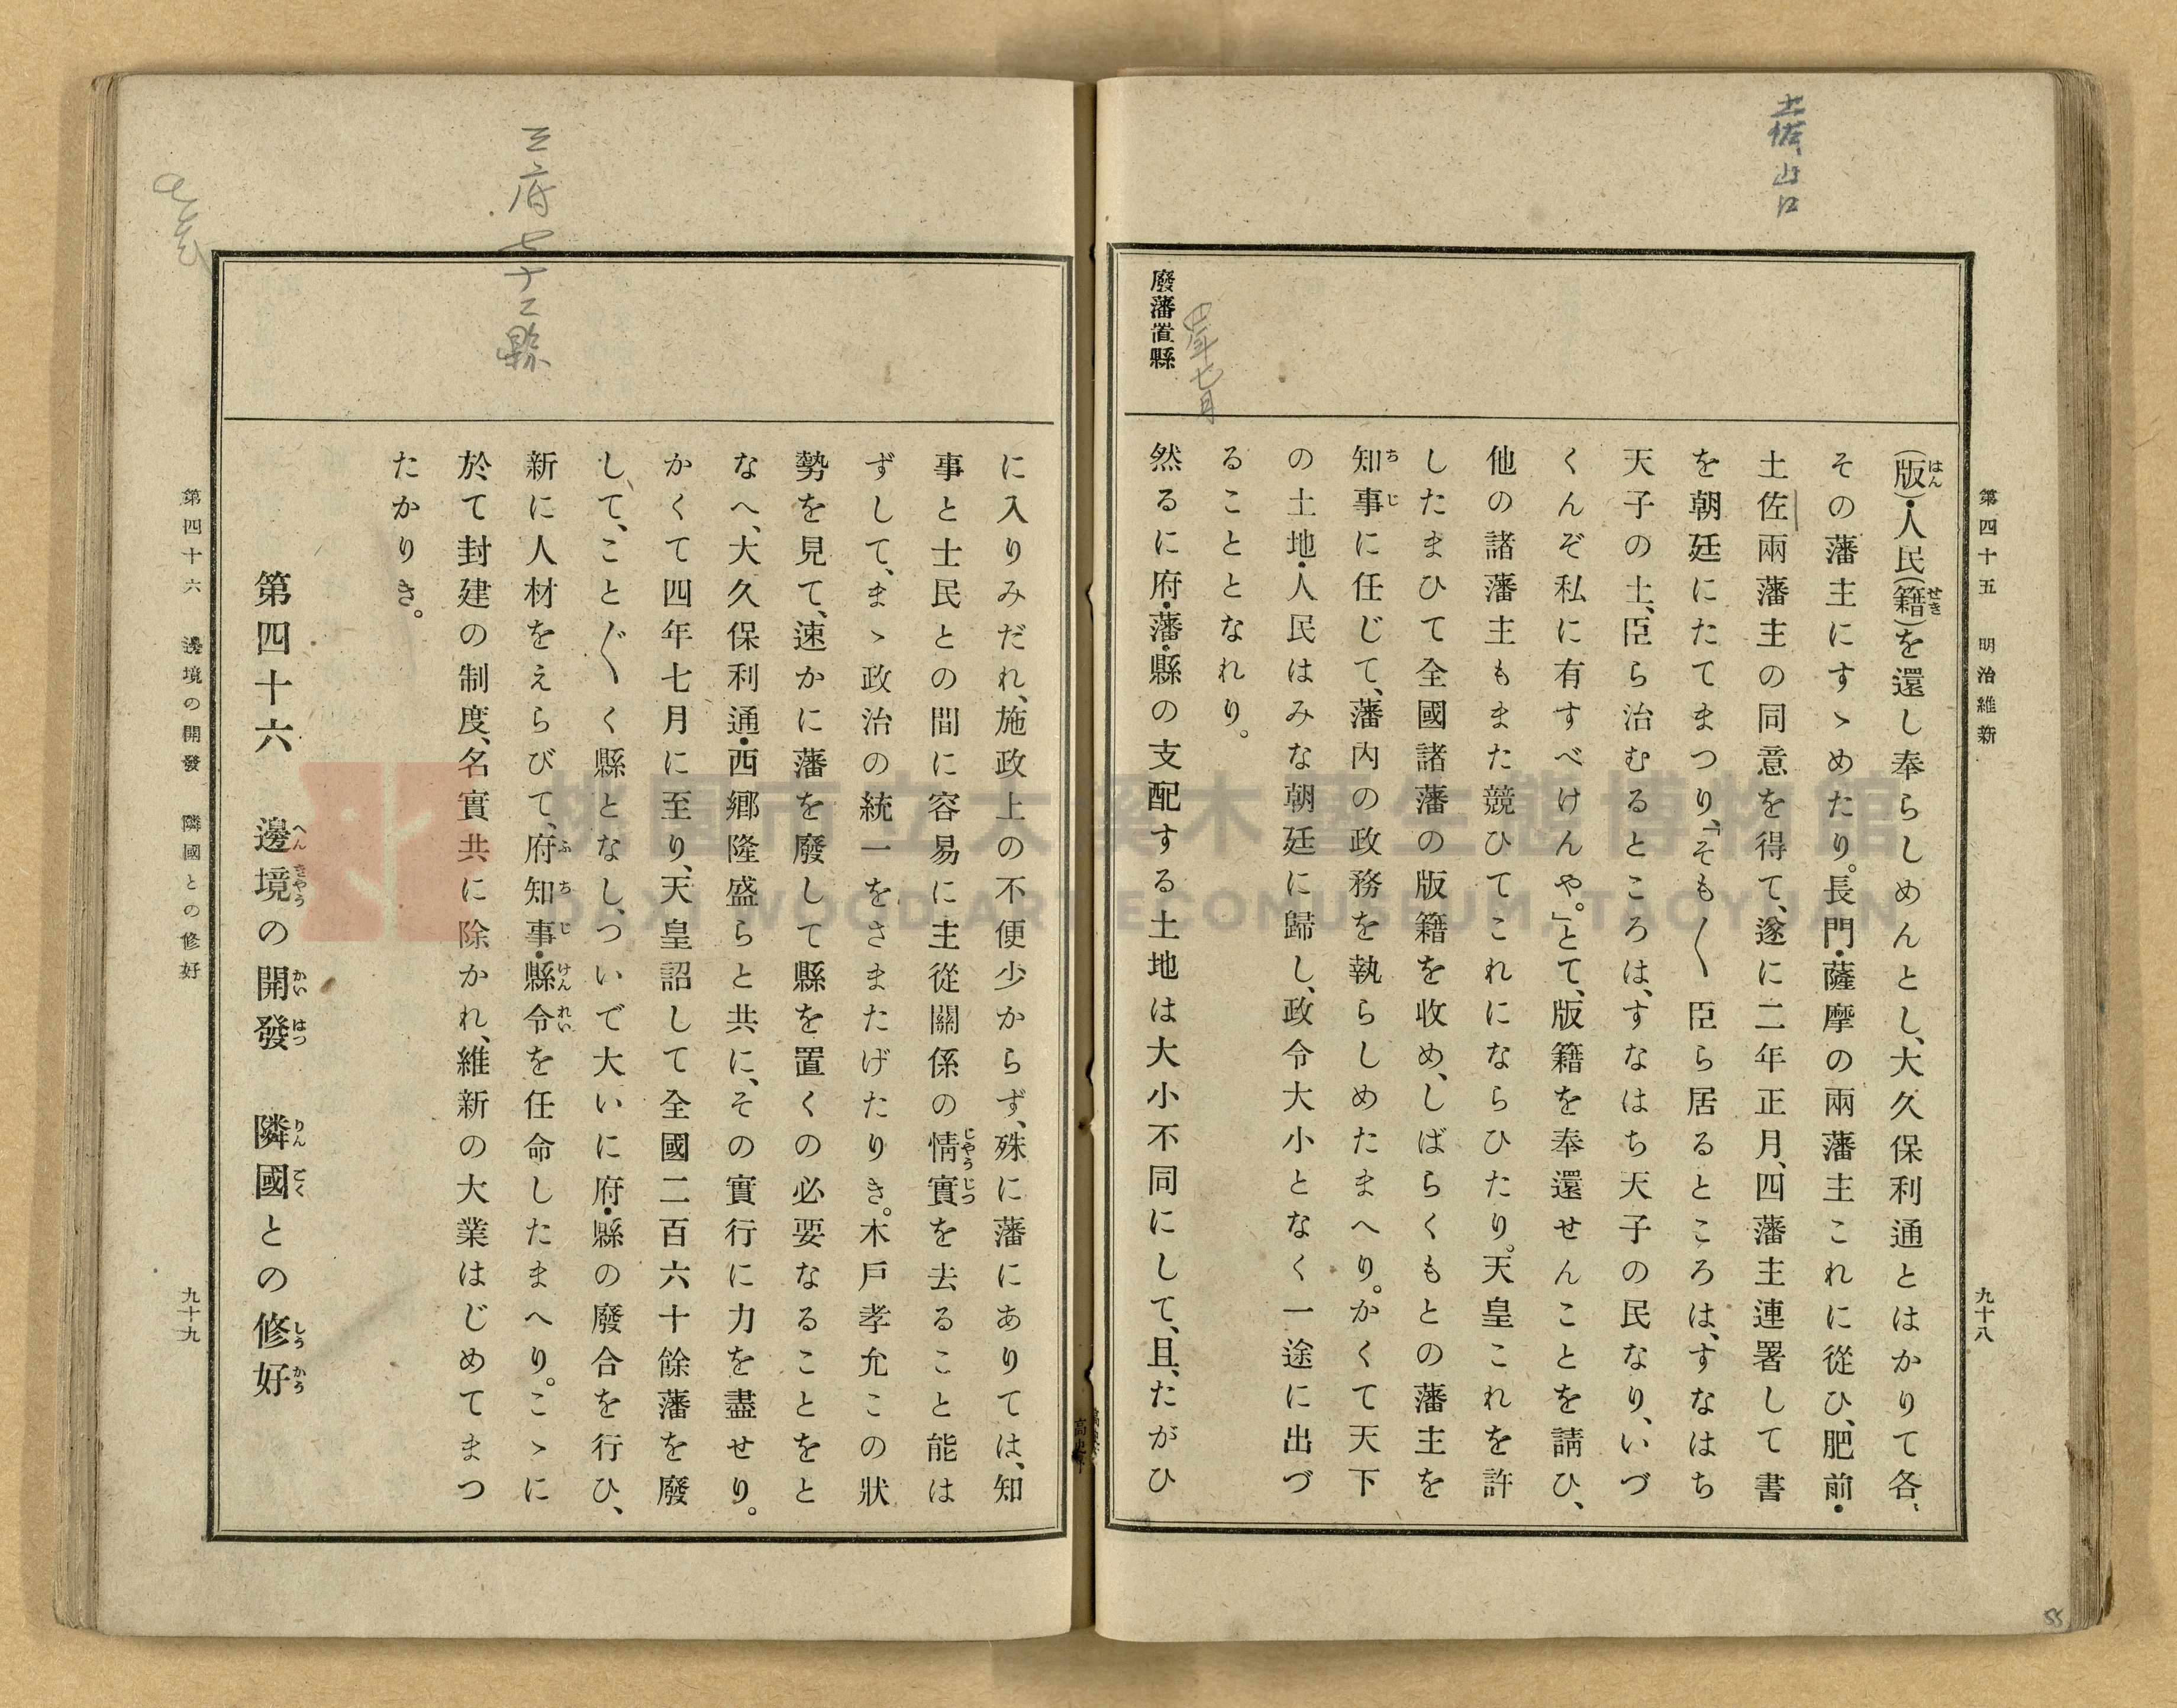 土佐、山口
第四十五　明治維新
九十八
(版)・人民(籍)を還し奉らしめんとし、大久保利通とはかりて各〻
その藩主にすゝめたり。長門・薩摩の兩藩主これに從ひ、肥前・
土佐兩藩主の同意を得て、遂に二年正月、四藩主連署して書
を朝廷にたてまつり、「そも〳〵臣ら居るところは、すなはち
天子の土、臣ら治むるところは、すなはち天子の民なり、いづ
くんぞ私に有すべけんや。」とて、版籍を奉還せんことを請ひ、
他の諸藩主もまた競ひてこれにならひたり。天皇これを許
したまひて全國諸藩の版籍を收め、しばらくもとの藩主を
知事に任じて、藩内の政務を執らしめたまへり。かくて天下
の土地・人民はみな朝廷に歸し、政令大小となく一途に出づ
ることとなれり。
四年七月
廢藩置縣
然るに府・藩・縣の支配する土地は大小不同にして、且、たがひ
に入りみだれ、施政上の不便少からず、殊に藩にありては、知
事と士民との間に容易に主從關係の情實を去ること能は
ずして、まゝ政治の統一をさまたげたりき。木戶孝允この狀
勢を見て、速かに藩を廢して縣を置くの必要なることをと
なへ、大久保利通・西鄉隆盛らと共に、その實行に力を盡せり。
かくて四年七月に至り、天皇詔して全國二百六十餘藩を廢
して、こと〴〵く縣となし、ついで大いに府・縣の廢合を行ひ、
新に人材をえらびて、府知事・縣令を任命したまへり。こゝに
於て封建の制度、名實共に除かれ、維新の大業はじめてまつ
たかりき。
三府七十二縣
第四十六　邊境の開發　隣國との修好
第四十六　邊境の開發　隣國との修好
九十九
55
桃園市立大溪木藝生態博物館
DAXI WOOD ART ECOMUSEUM, TAOYUAN